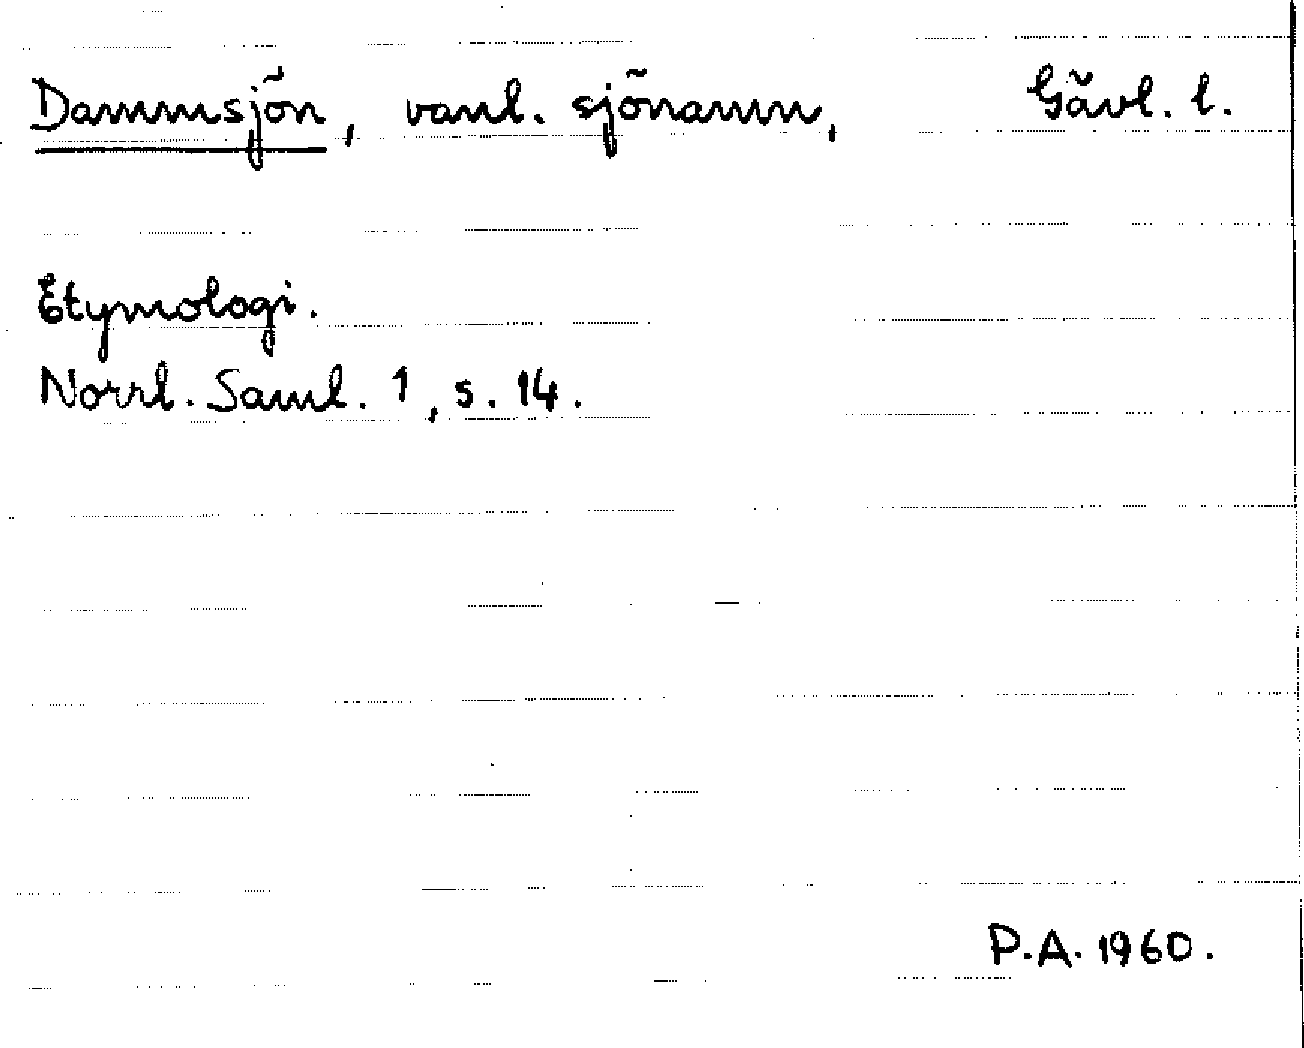 Dammsjön, vanl. sjönamn, Gävl. l.
Etymologi.
Norrl. Saml. 1, s. 14.
P.A. 1960.